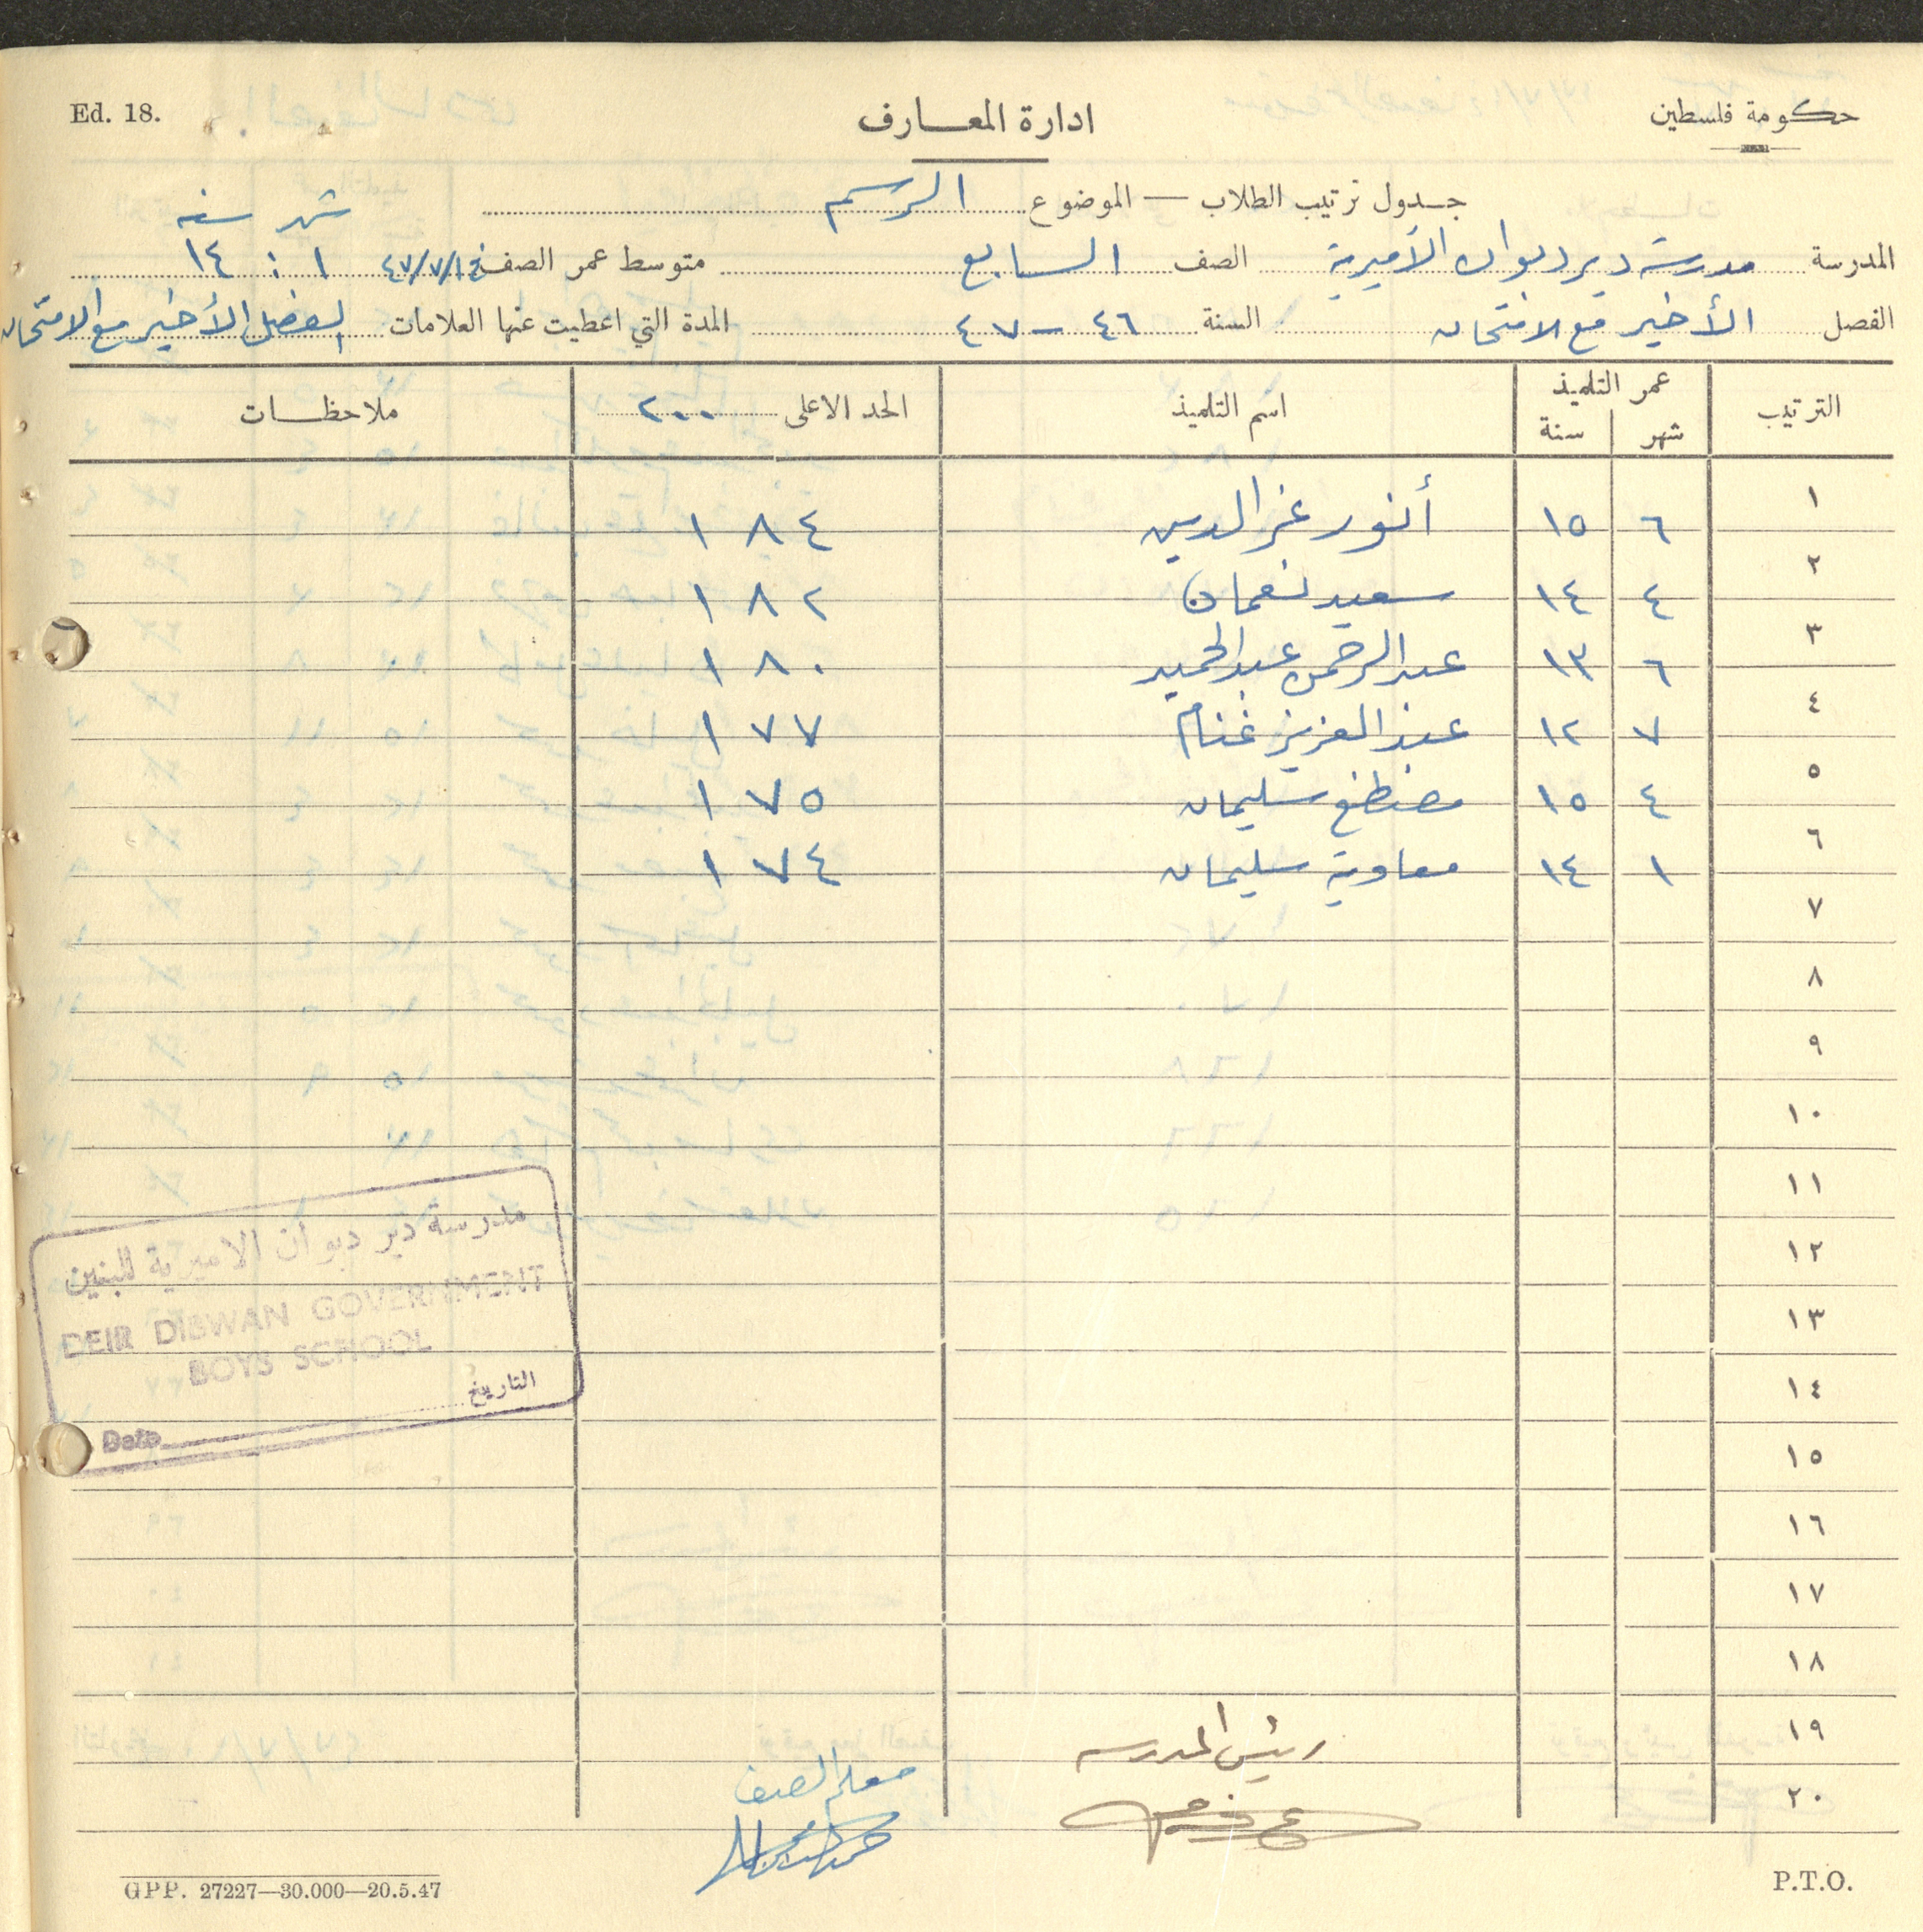 Ed. 18.
ادارة المعارف
حكومة فلسطين
جدول ترتيب الطلاب — الموضوع الرسم
شهر سنه
المدرسة مدرسة ديرديوان الأميرية الصف السابع متوسط عمر الصف ٤٧/٧/١٤ ١ : ١٤
الفصل الأخير مع الامتحان السنة ٤٦ - ٤٧ المدة التي اعطيت عنها العلامات الفصل الأخير مع الامتحان
الترتيب عمر التلميذ اسم التلميذ الحد الاعلى ٢٠٠ ملاحظات
شهر سنة
١ ٦ ١٥ أنور عز الدين ١٨٤
٢ ٤ ١٤ سعيد نعمان ١٨٢
٣ ٦ ١٣ عبد الرحمن عبد الحميد ١٨٠
٤ ٧ ١٢ عبد العزيز غنام ١٧٧
٥ ٤ ١٥ مصطفى سليمان ١٧٥
٦ ١ ١٤ معاوية سليمان ١٧٤
٧
٨
٩
١٠
١١
١٢
١٣
١٤
١٥
١٦
١٧
١٨
١٩
٢٠
مدرسة دير ديوان الاميرية للبنين
DEIR DIBWAN GOVERNMENT
BOYS SCHOOL
التاريخ
Date
رئيس المدرسه
معلم الصف
GPP. 27227—30.000—20.5.47
P.T.O.